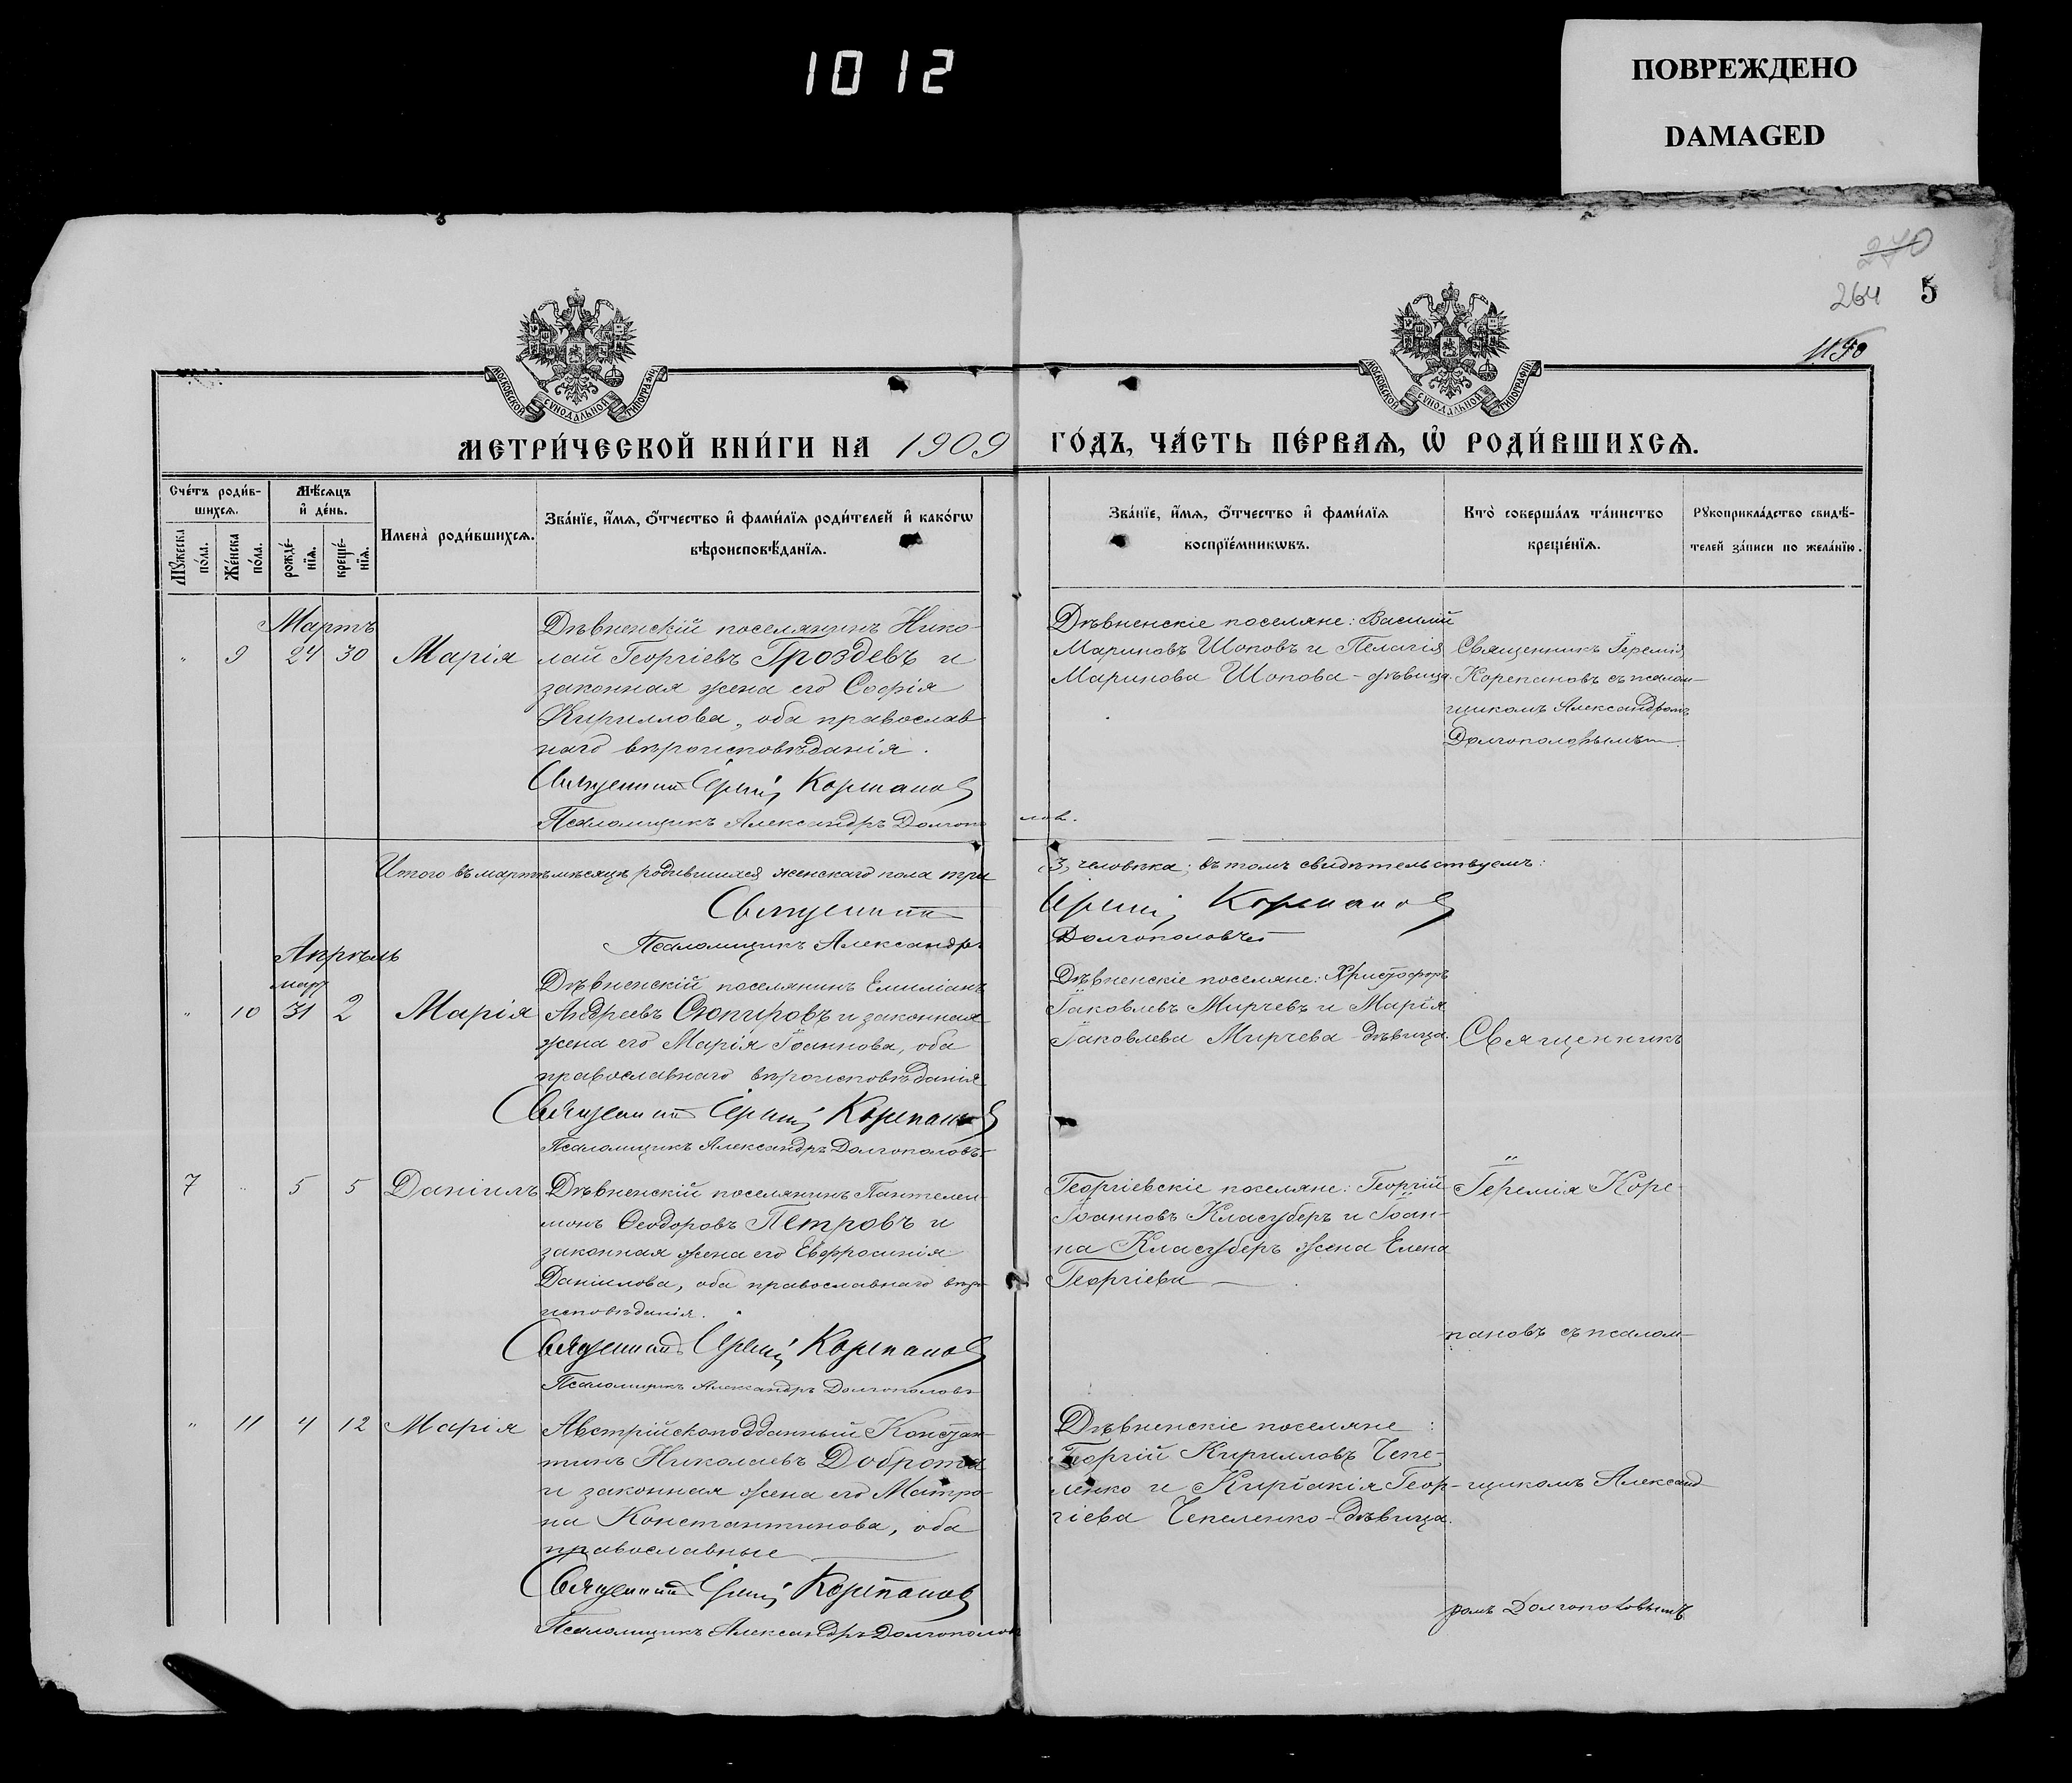 1012
ПОВРЕЖДЕНО
DAMAGED
270
264 5
МОСКОВСКОЙ СѴНОДАЛЬНОЙ ТИПОГРАФІИ
МОСКОВСКОЙ СѴНОДАЛЬНОЙ ТИПОГРАФІИ
МЕТРИ́ЧЕСКОЙ КНИ́ГИ НА 1909 ГО́ДЪ, ЧА́СТЬ ПЕ́РВАѦ, Ѡ҆ РОДИ́ВШИХСѦ.
Сче́тъ роди́в-
шихсѧ.
Мꙋ́жеска по́ла.
Же́нска по́ла.
Мѣ́сѧцъ
и҆ де́нь.
рожде́-
нїѧ.
креще́-
нїѧ.
Имена̀ роди́вшихсѧ.
Зва́нїе, и҆́мѧ, ѻ҆́тчество и҆ фами́лїѧ роди́телей и҆ како́гѡ
вѣроисповѣ́данїѧ.
Зва́нїе, и҆́мѧ, ѻ҆́тчество и҆ фами́лїѧ
воспрїе́мникѡвъ.
Кто̀ соверша́лъ та́инство
креще́нїѧ.
Рꙋкоприкла́дство свидѣ́-
телей за́писи по жела́нїю.
Мартъ
" 9 24 30 Марія
Дѣвненскій поселянинъ Нико-
лай Георгіевъ Гроздевъ и
законная жена его Софія
Кириллова, оба православ-
наго вѣроисповѣданія.
Священникъ Іеремія Корепановъ
Псаломщикъ Александръ Долгополов.
Дѣвненскіе поселяне: Василій
Мариновъ Шоповъ и Пелагія
Маринова Шопова - дѣвица.
Священникъ Іеремія
Корепановъ съ псалом-
щикомъ Александромъ
Долгополовымъ
Итого въ мартѣ мѣсяцѣ родившихся женскаго пола три 3, человѣка; въ томъ свидѣтельствуемъ:
Священникъ Іеремія Корепановъ
Псаломщикъ Александръ Долгополовъ
Апрѣль
мар.
" 10 31 2 Марія
Дѣвненскій поселянинъ Емиліанъ
Андреевъ Стопировъ и законная
жена его Марія Іоаннова, оба
православнаго вѣроисповѣданія
Священникъ Іеремія Корепановъ
Псаломщикъ Александръ Долгополовъ
Дѣвненскіе поселяне: Христофоръ
Іаковлевъ Мирчевъ и Марія
Іаковлева Мирчева дѣвица.
Священникъ
7 " 5 5 Даніилъ
Дѣвненскій поселянинъ Пантелеи-
монъ Ѳеодоровъ Петровъ и
законная жена его Евфросинія
Даніилова, оба православнаго вѣро-
исповѣданія.
Священникъ Іеремія Корепановъ
Псаломщикъ Александръ Долгополовъ
Георгіевскіе поселяне: Георгій
Іоанновъ Класуберъ и Іоан-
на Класуберъ жена Елена
Георгіева
Іеремія Коре-
пановъ съ псалом-
" 11 4 12 Марія
Австрійскоподданный Констан-
тинъ Николаевъ Доброта
и законная жена его Матро-
на Константинова, оба
православные
Священникъ Іеремія Корепановъ
Псаломщикъ Александръ Долгополов
Дѣвненскіе поселяне:
Георгій Кирилловъ Чепе-
ленко и Киріакія Геор-
гіева Чепеленко - дѣвица.
щикомъ Александ
ромъ Долгополовымъ